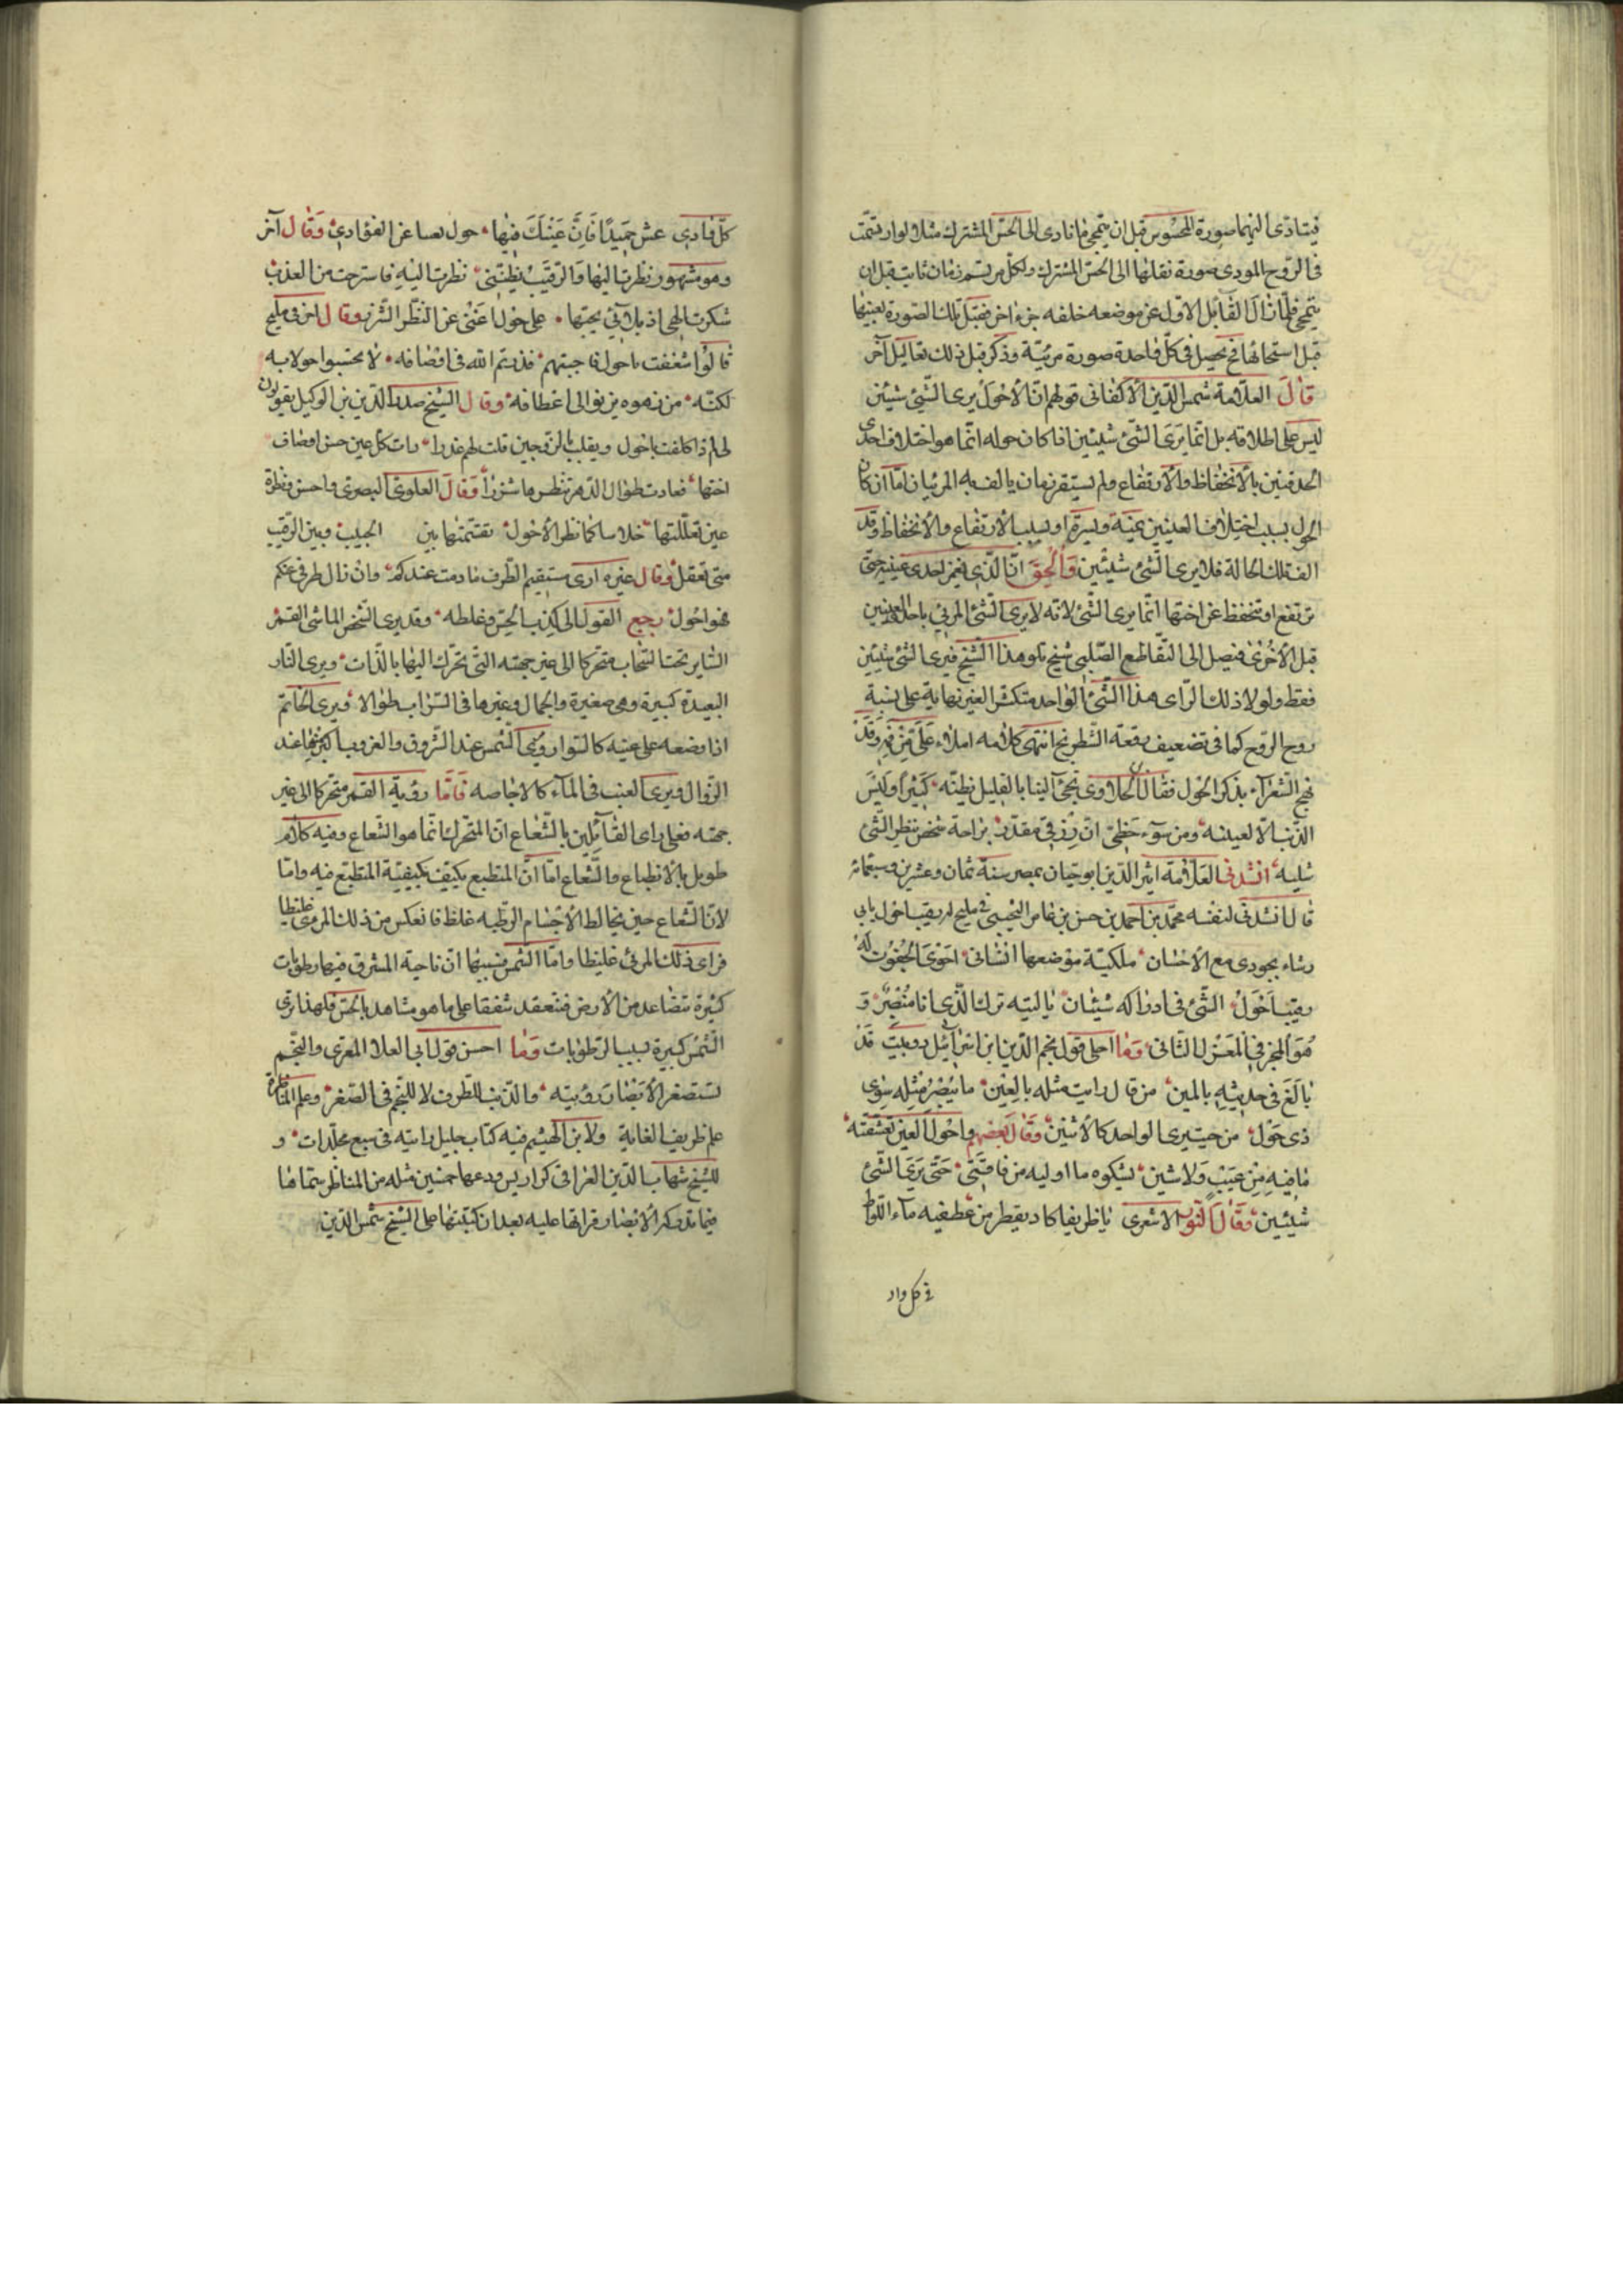 فيتادى اليهما صورة المحسوس قبل ان ينمحى ما تادى الى الحس المشترك مثلا لو ارتسمت
فى الروح المودى صورة نقلها الى الحس المشترك ولكل مرتسم زمان ثابت قبل ان
ينمحى فلما زال القابل الاول عن موضعه خلفه جزء اخر فقبل تلك الصورة بعينها
قبل استحالها فح يحصل فى كل واحدة صورة مرئية وذكر قبل ذلك تعاليل آخر
قال العلامة شمس الدين الاكفانى قولهم ان الاحول يرى الشئ شيئين
ليس على اطلاقه بل انما يرى الشئ شيئين اذا كان حوله انما هو اختلاف احدى
الحدقتين بالانخفاظ والارتفاع ولم يستقر زمان يالف به المرئيان اما ان كان
الحول بسبب اختلاف العينين يمنة ويسرة او بسبب الارتفاع والانخفاظ وقد
الف تلك الحالة فلا يرى الشئ شيئين والحق ان الذى يغمز احدى عينيه حتى
ترتفع او تنخفظ عن اختها انما يرى الشئ لانه لا يرى الشئ المرئى باحدى العينين
قبل الاخرى فيصل الى التقاطع الصليبى شبح يتلو هذا الشبح فيرى الشئ شيئين
فقط ولولا ذلك لراى هذا الشئ الواحد متكثرا لغير نهاية على نسبة
روح الروح كما فى تضعيف رقعة الشطرنج انتهى كلامه املاء على من فيه وقد
نهج الشعراء بذكر الحول فقال الحلاوى نجئ الينا بالقليل نظنه كثيرا وليس
الذنب الا لعينه ومن سوء حظى ان رزقى مقدر براحة شخص ينظر الشئ
شليه انشدنى العلامة اثير الدين ابو حيان بمصر سنة ثمان وعشرين وسبعمائة
قال انشدنى لنفسه محمد بن احمد بن حسن بن عامر التجيبى فى مليح له رقيب احول بابى
رشاء يجودى مع الاحسان ملكية موضعها انشانى احوى الجفون له
رقيب احول الشئ فى ادراكه شيئان يا ليته ترك الذى انا مبصر و
هو المخبر فى المغزل الثانى وما احلى قول نجم الدين ابن اسرائيل دوبيت قد
بالغ فى حديثه بالمين من قال رايت مثله بالعين ما يبصر مثله سوى
ذى حول من حيث يرى الواحد كالاثنين وقال بعضهم واحول العين تعشقته
ما فيه من عيب ولا شين يشكوه ما اوليه من فاقتى حتى يرى الشئ
شيئين وقال النور الاشعرى يا ظريفا كاد يقطر من عطفيه ماء اللواط
فى كل واد
كل فادى عش حميدا فان عينك فيها حول لعسا عن الفؤادى وقال آخر
وهو مشهور نظرت اليها والرقيب يظننى نظرت اليه فاسترحت من العذب
شكرت الهى اذ بلانى بحبها على حول اغنى عن النظر الشزر وقال آخر فى مليح
قالوا شغفت باحول فاجبتهم فذرتم الله فى اوصافه لا تحسبوا حولا به
لكنه من زهوه يزنو الى اعطافه وقال الشيخ صدر الدين بن الوكيل يقولون
لى لم ذا كلفت باحول ويقلب بالزوجين قلت لهم عذرا رات كل عين حسن اوصاف
اختها فعادت طوال الدهر تنظرها شزرا وقال العلوى البصرى واحسن نظرة
عين تعللتها خلاسا كما نظر الاحول تقسمتها بين الحبيب وبين الرقيب
متى تعقل وقال غيره ارى مستقيم الطرف ما دمت عندكم وان زال طرفى عنكم
فهو احول يرجع القول الى كذب الحس وغلطه وقد يرى الشخص الماشى القمر
الساير تحت السحاب متحركا الى غير جهته التى يتحرك اليها بالذات ويرى النار
البعيدة كبيرة وهى صغيرة والجمال وغيرها فى السراب طوالا ويرى الخاتم
اذا وضعه على عينه كالسوار ويرى الشمس عند الشروق والغروب اكبر منها عند
الزوال ويرى العنب فى الماء كالاجاصه فاما رؤية القمر متحركا الى غير
جهته فعلى راى القائلين بالشعاع ان المتحرك انما هو الشعاع وفيه كلام
طويل بالانطباع والشعاع اما ان المنطبع يكيف بكيفية المنطبع فيه واما
لان الشعاع حين يخالط الاجسام الرطبه غلظ فانعكس من ذلك المرءى غليظا
فراى ذلك المرئى غليظا واما الشمس فسببها ان ناحية المشرق فيها رطوبات
كثيرة تتصاعد من الارض فتنعقد شفقا على ما هو مشاهد بالحس فلهذا ترى
الشمس كبيرة بسبب الرطوبات وما احسن قول ابى العلا المعرى والنجم
تستصغر الابصار رؤيته والذنب للطرف لا للنجم فى الصغر وعلم المناظرة
علم ظريف الغاية ولابن الهيثم فيه كتاب جليل رايته فى سبع مجلدات و
للشيخ شهاب الدين القرافى كراريس اودعها خمسين مثله من المناظر سماها
فيما تدركه الابصار قراتها عليه بعد ان كتبتها على الشيخ شمس الدين